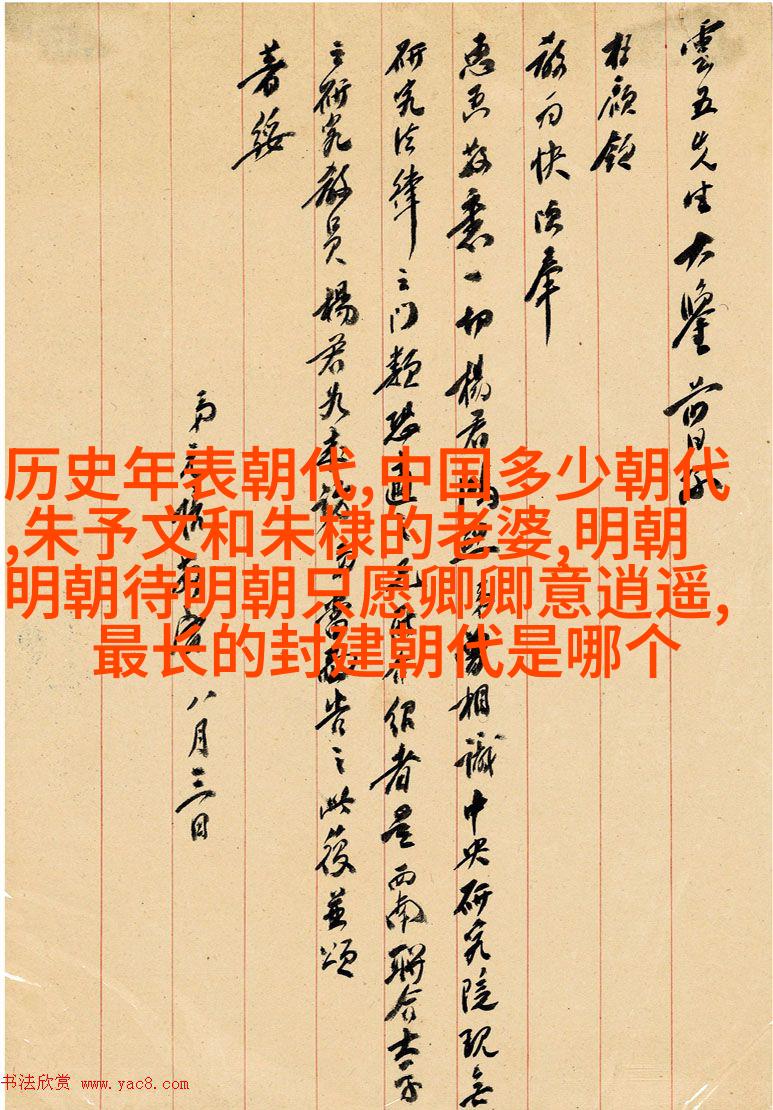 雲五先生大鑒前日承
枉顧領
教为快頃奉
惠示敬悉一切楊君相識中央研究院現無
研究法律之門類恐介紹者是西南聯合大学
之研究教員楊君如告之此複並頌
著綏
弟八月三日
历史年表朝代,中国多少朝代
,朱予文和朱棣的老婆,明朝
明朝待明朝只愿卿卿意逍遥,
最长的封建朝代是哪个
书法欣赏 www.yac8.com